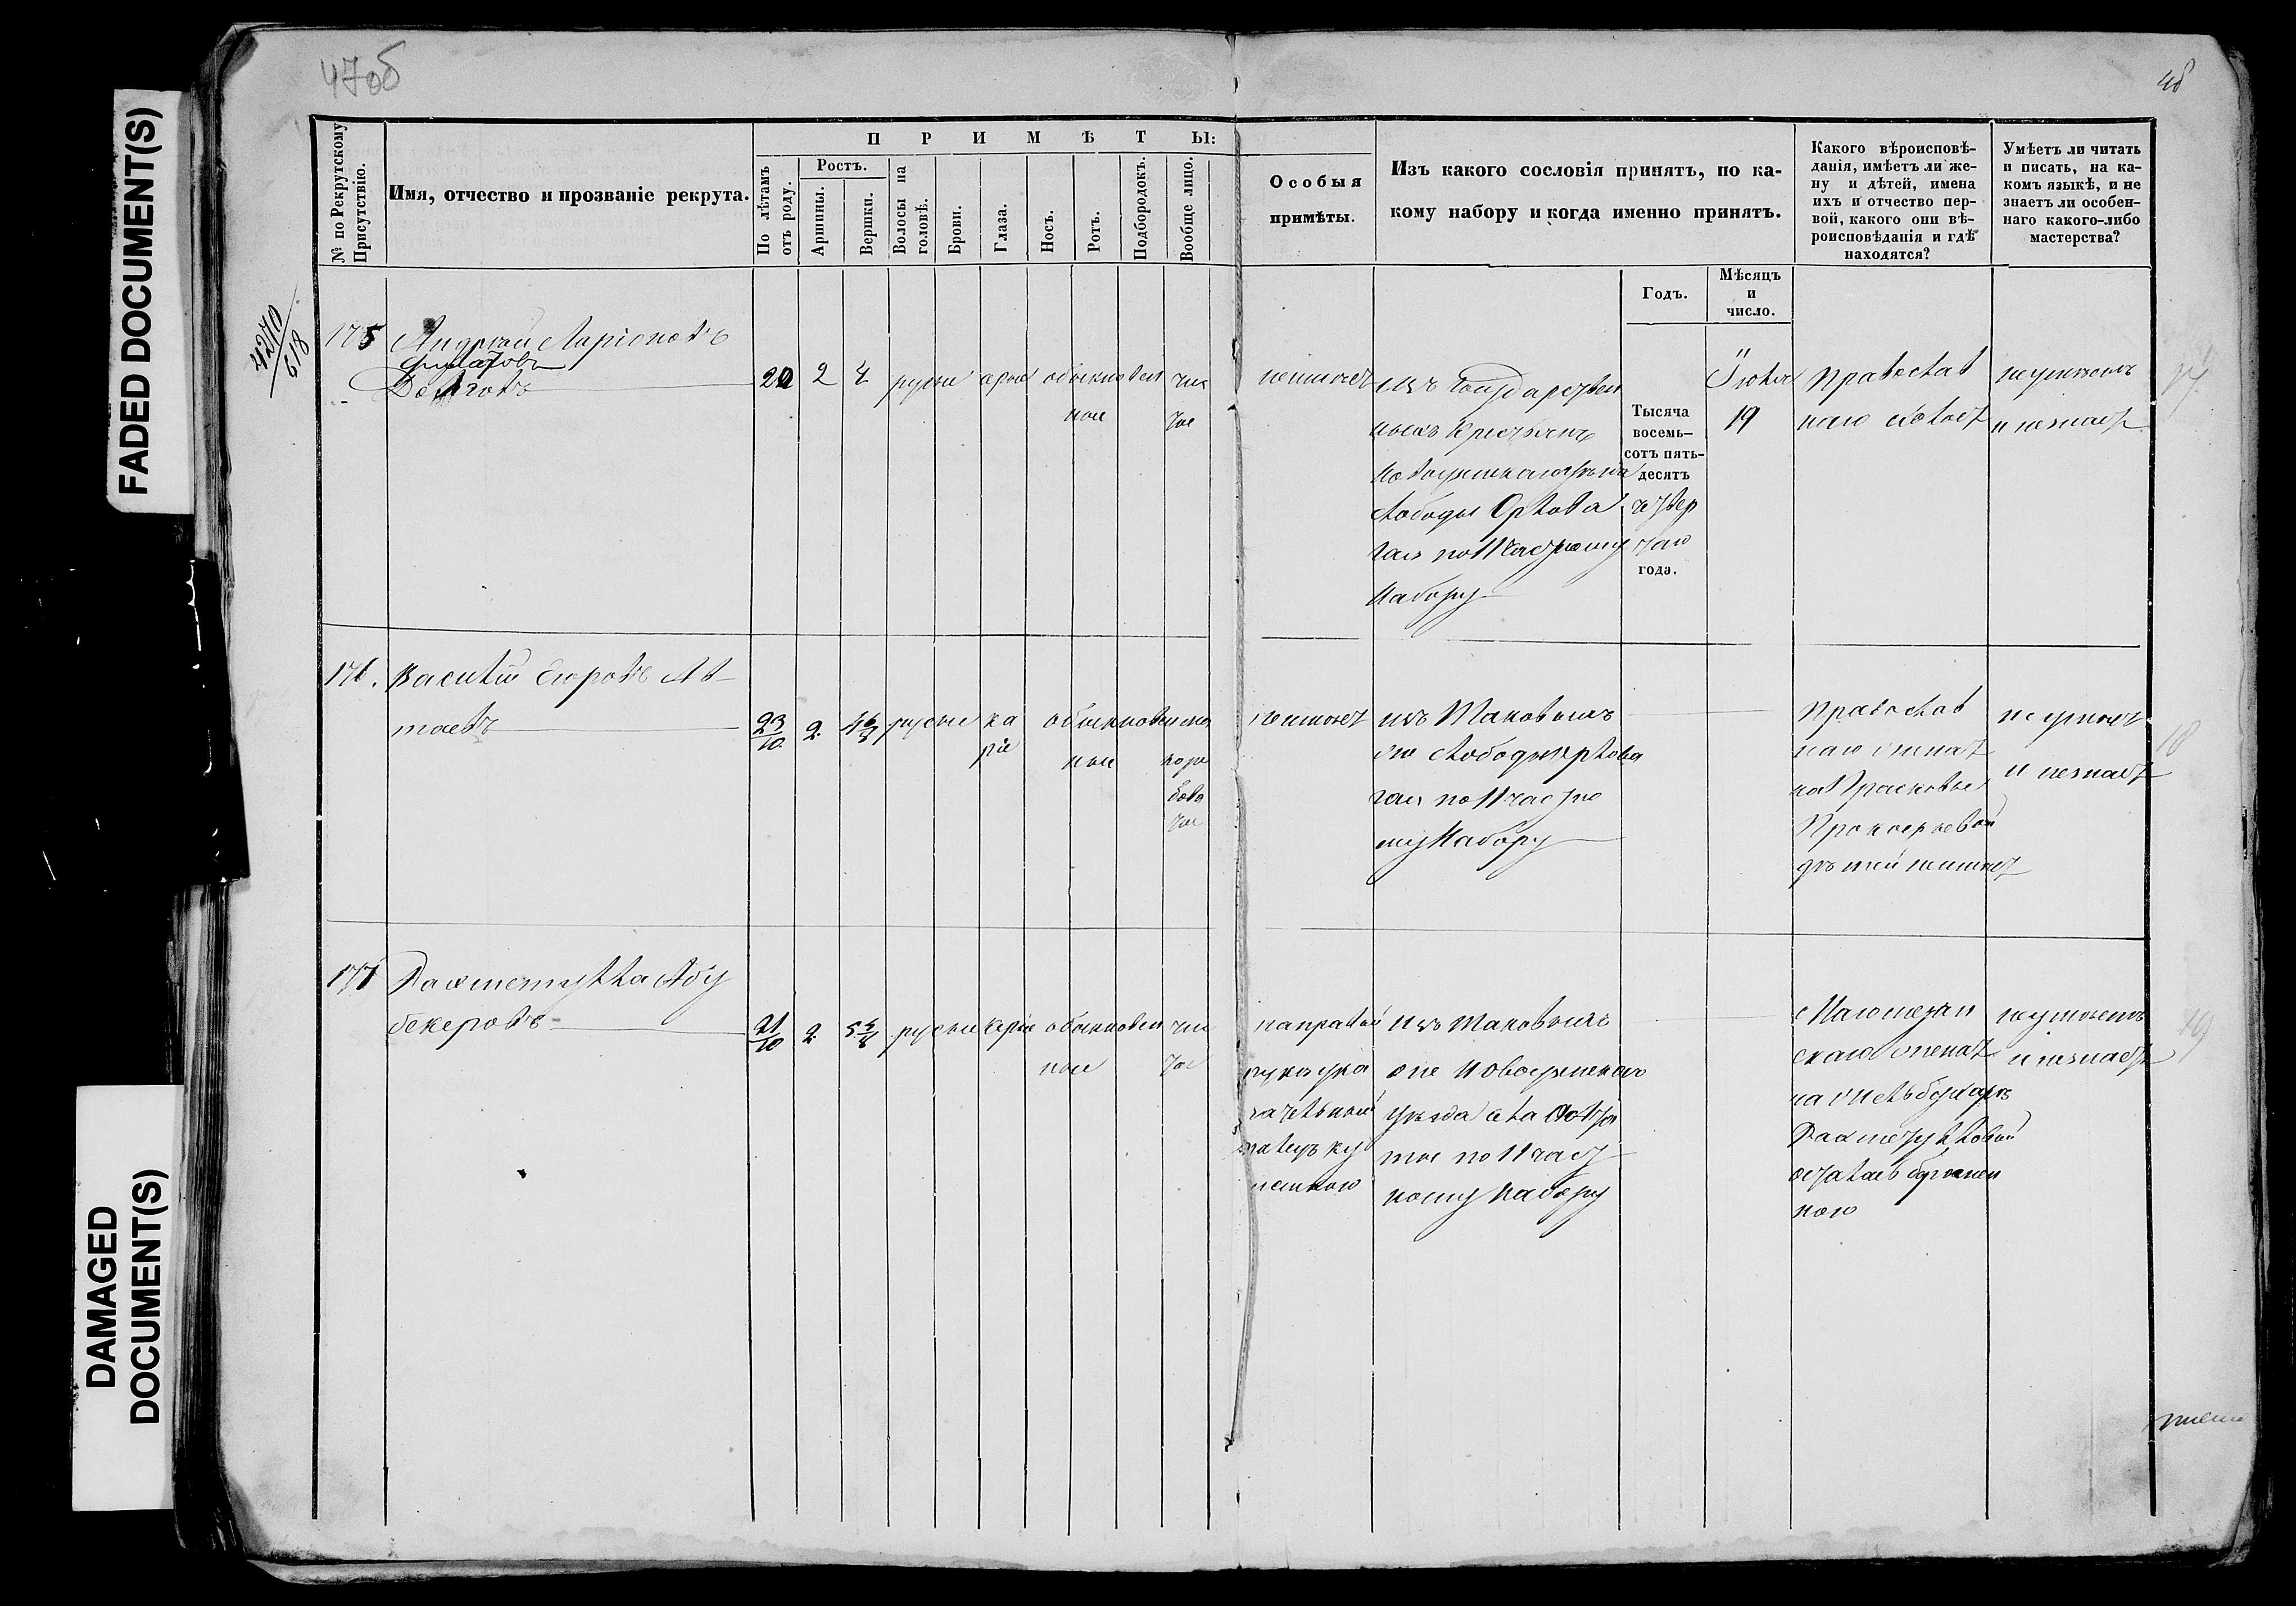 47об
48
FADED DOCUMENT(S)
DAMAGED
DOCUMENT(S)
№ по Рекрутскому
Присутствію.
Имя, отчество и прозваніе рекрута.
ПРИМѢТЫ:
По лѣтамъ
отъ роду.
Ростъ.
Аршины.
Вершки.
Волосы на
головѣ.
Брови.
Глаза.
Носъ.
Ротъ.
Подбородокъ.
Вообще лицо.
Особыя
примѣты.
Изъ какого сословія принятъ, по ка-
кому набору и когда именно принятъ.
Годъ.
Мѣсяцъ
и
число.
Какого вѣроисповѣ-
данія, имѣетъ ли же-
ну и дѣтей, имена
ихъ и отчество пер-
вой, какого они вѣ-
роисповѣданія и гдѣ
находятся?
Умѣетъ ли читать
и писать, на ка-
комъ языкѣ, и не
знаетъ ли особен-
наго какого-либо
мастерства?
4270
618
175
Андрей Ларіоновъ
Долговъ
20
2
4
русые
сѣрые
обыкновен
ные
чис
тое
неимѣет
изъ Государствен
ныхъ Крестьянъ
Новоузенскаго уѣзда
слободы Орлова
гая по 11 частному
набору
Тысяча
восемь-
сотъ пять-
десятъ
четвер
таго
года.
Іюля
19
православ
наго холост
неумѣетъ
и незнаетъ
17
176.
Василій Егоровъ
маевъ
23
10
2
русые
ка
ріе
обыкновен
ные
неимѣет
изъ Таковыхъ
же слободы Орлова
гая по 11 частно
му набору
православ
наго женат
на Прасковье
Прокофьевой
дѣтей неимѣет
неумѣетъ
и незнаетъ
18
177
Рахметулла Абу
бекеровъ
21
10
2
русые
каріе
обыкновен
ные
чис
тое
на правой
рукѣ ука
зательный
палецъ
Изъ Таковыхъ
же Новоузенскаго
уѣзда села Алтра
тое по 11 част
ному набору
Магометан
скаго женат
Рахметулловой
осталась беремен
ною
неумѣетъ
и незнаетъ
19